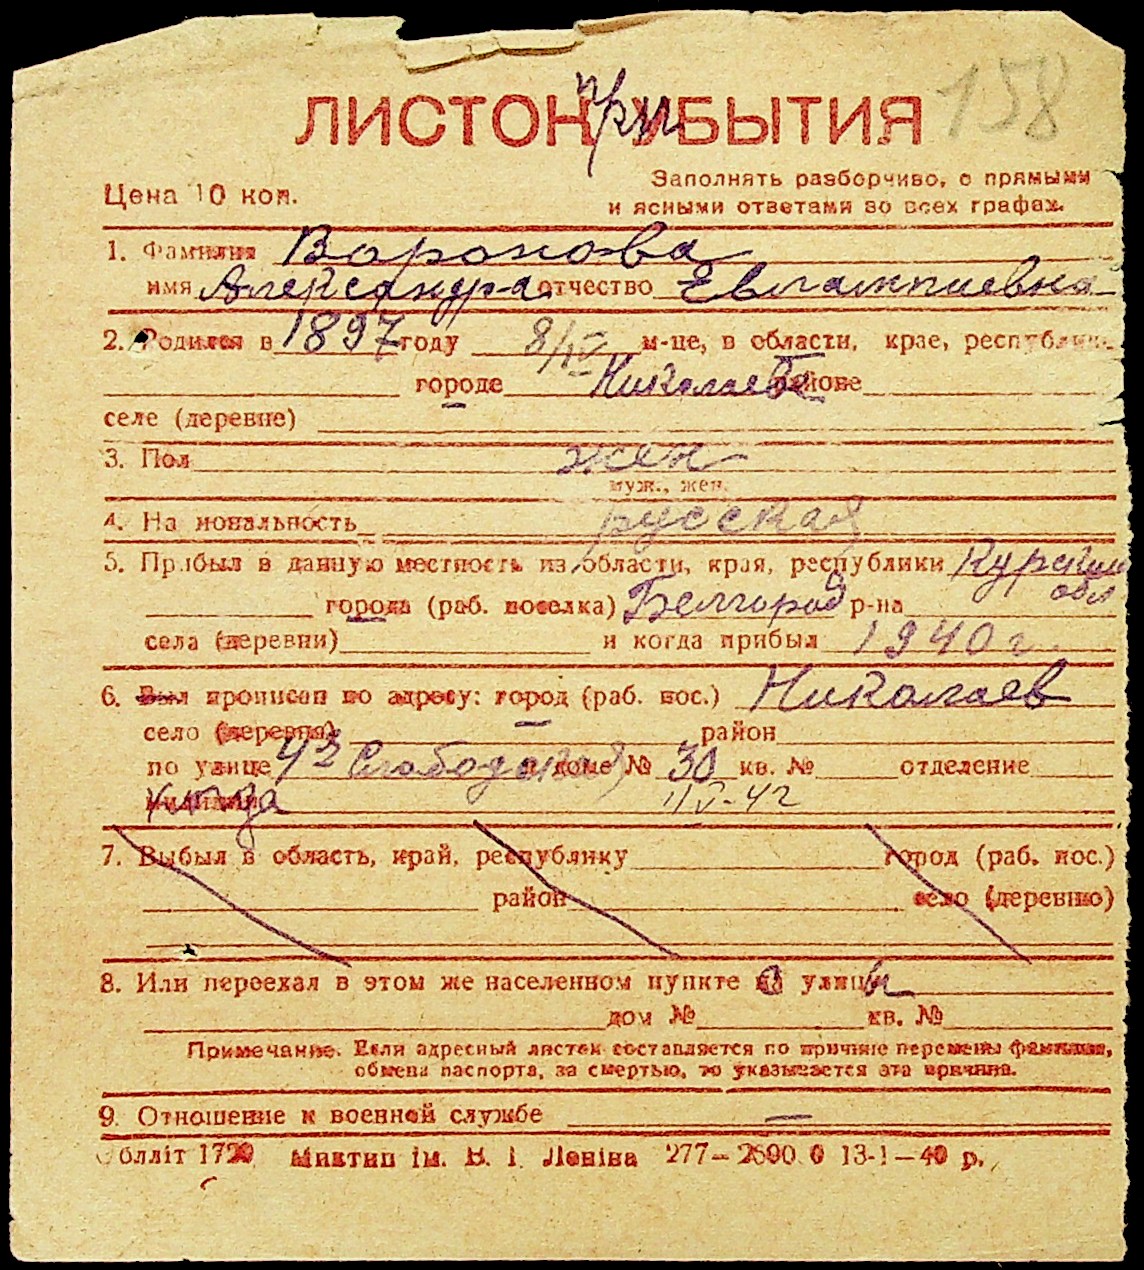 158
ЛИСТОК при УБЫТИЯ
Цена 10 коп.
Заполнять разборчиво, с прямыми
и ясными ответами во всех графах.
1. Фамилия Воронова
имя Александра отчество Евлампиевна
2. Родился в 1897 году 8/IV м-це, в области, крае, республике
городе Николаеве районе
селе (деревне)
3. Пол жен
муж., жен.
4. Национальность русская
5. Прибыл в данную местность из области, края, республики Курской
обл
города (раб. поселка) Белгород р-на
села (деревни) и когда прибыл 1940 г.
6. Был прописан по адресу: город (раб. пос.) Николаев
село (деревня) район
по улице 43 Слободская в доме № 30 кв. № отделение
милиции 11/V-42
7. Выбыл в область, край, республику город (раб. пос.)
район село (деревню)
8. Или переехал в этом же населенном пункте с улицы
дом № кв. №
Примечание. Если адресный листок составляется по причине перемены фамилии,
обмена паспорта, за смертью, то указывается эта причина.
9. Отношение к военной службе —
Обллiт 1729 Миктип iм. В. I. Ленiна 277—25000 13-1—40 р.